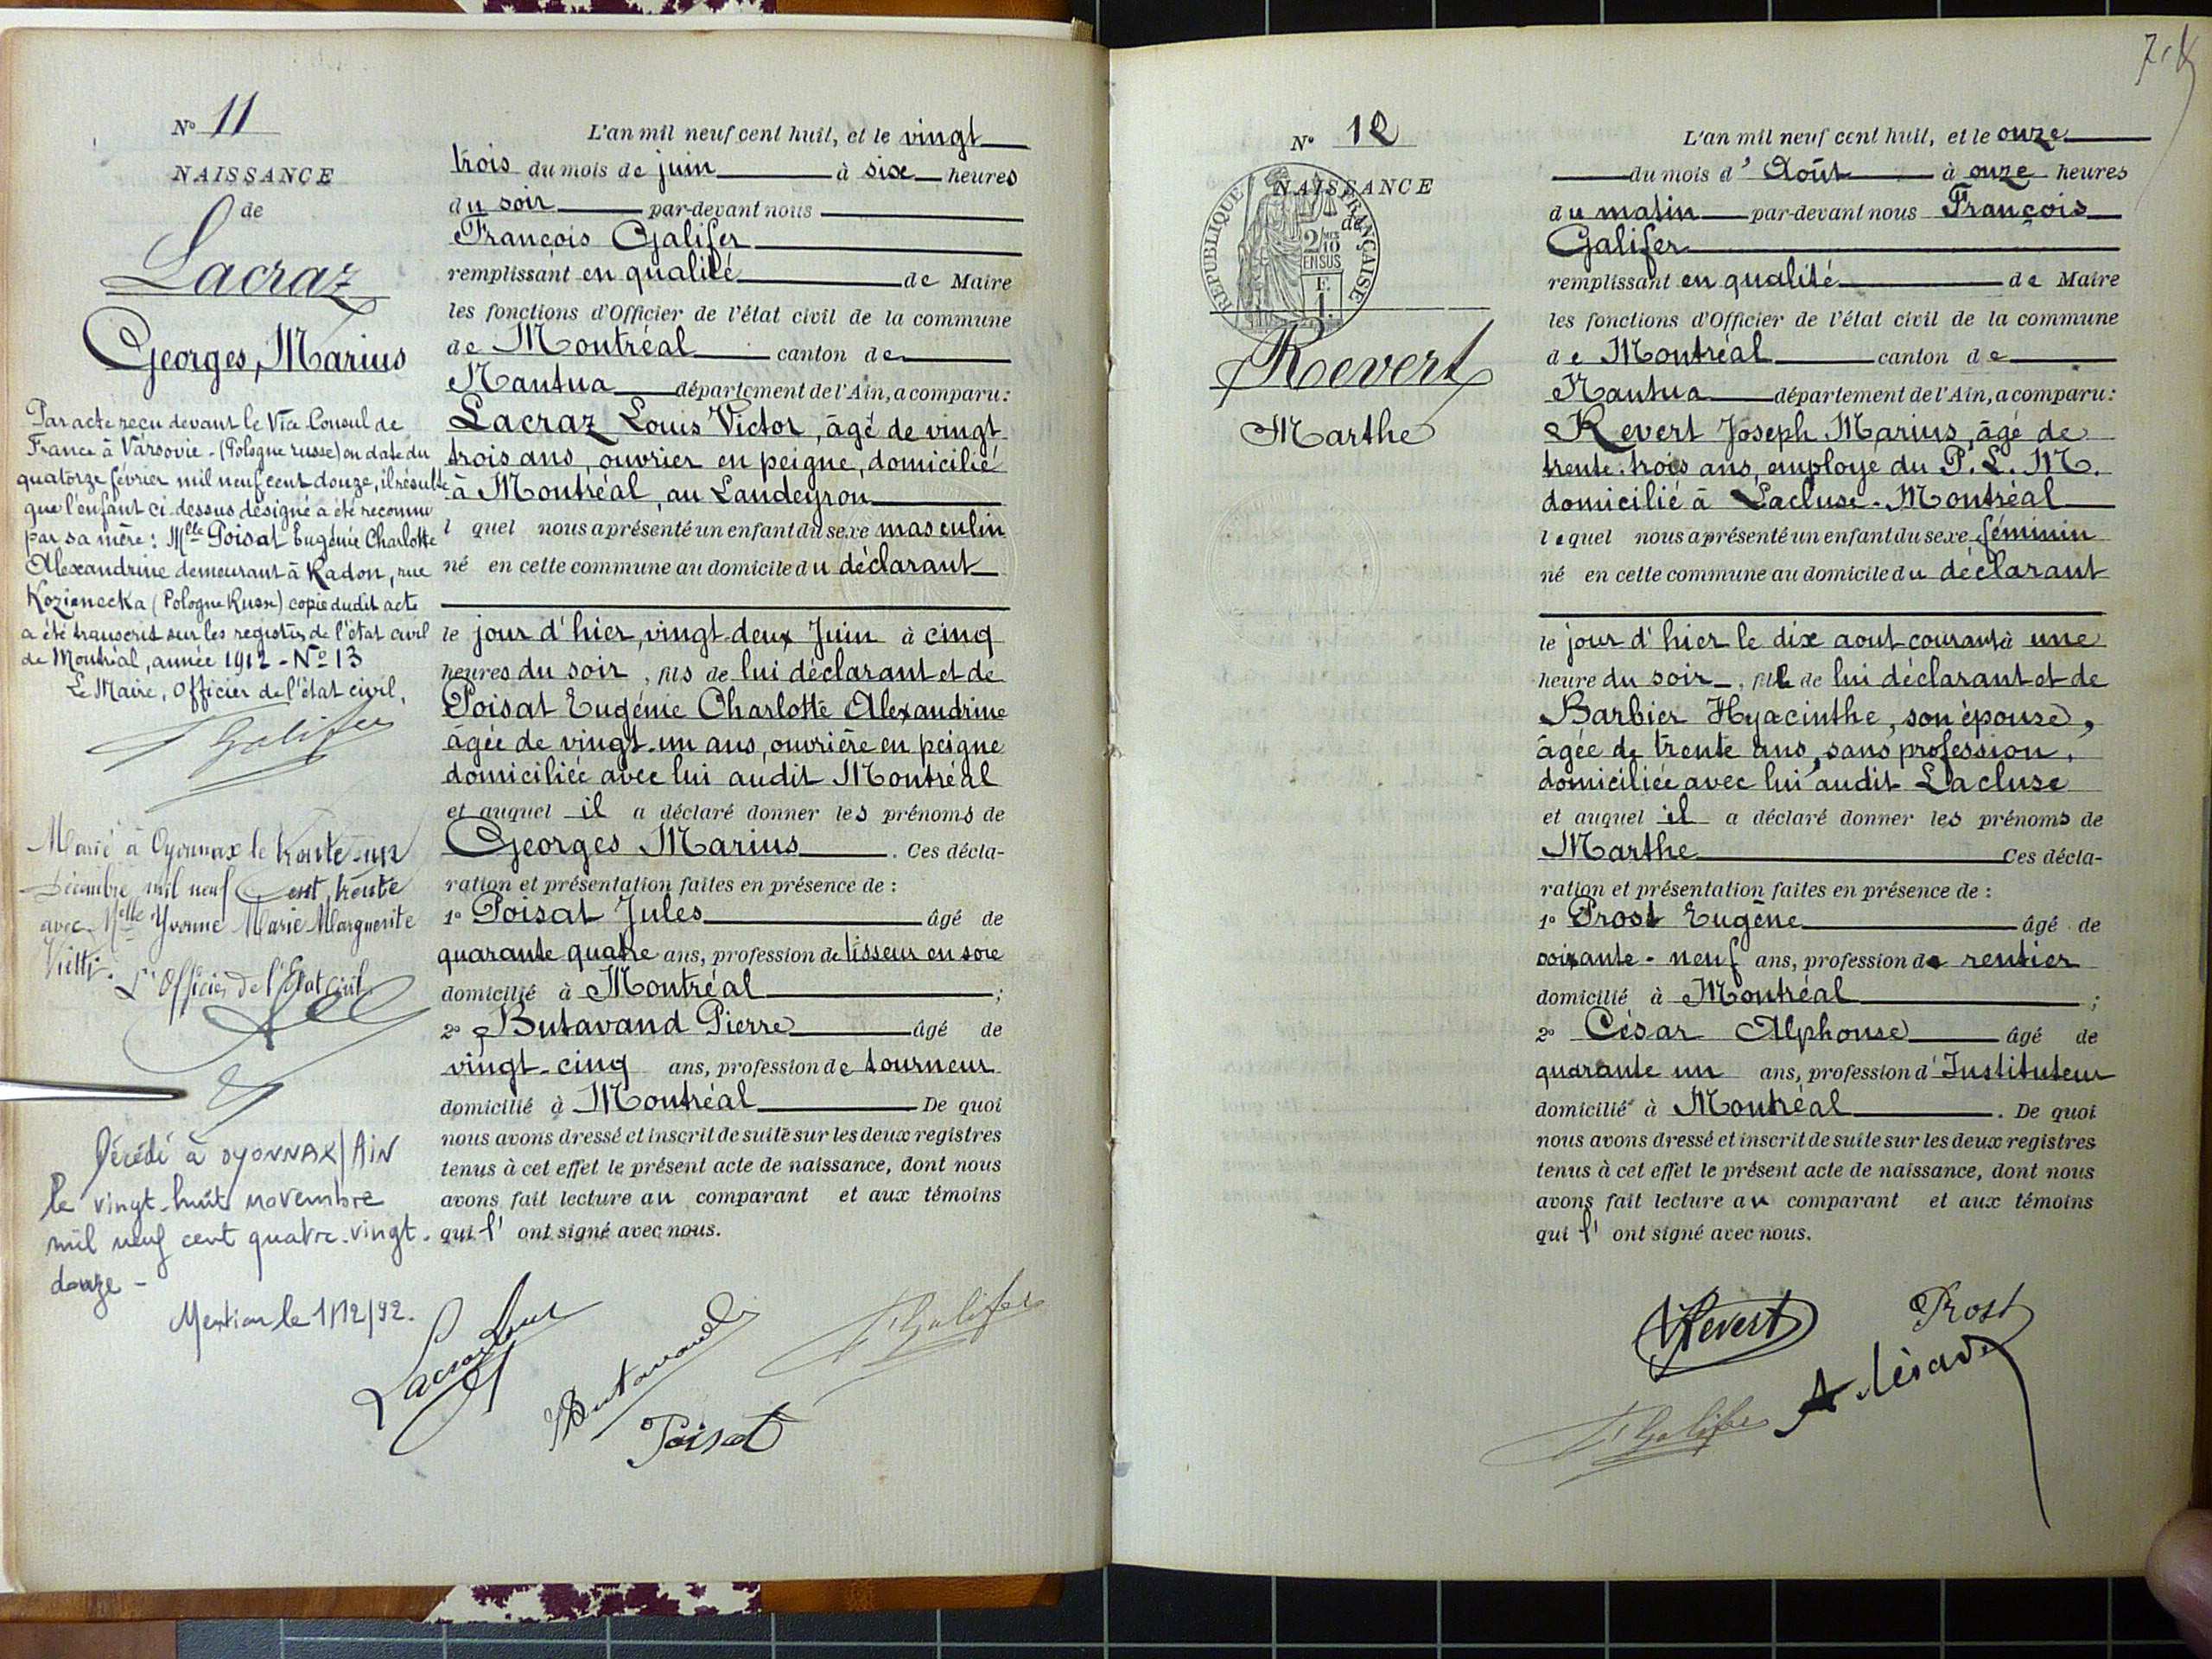 N° 11
NAISSANCE
de
Lacraz
Georges, Marius
Par acte reçu devant le Vice Consul de
France à Varsovie - (Pologne russe) en date du
quatorze février mil neuf cent douze, il résulte
que l'enfant ci-dessus désigné a été reconnu
par sa mère : Mlle Poisat Eugénie Charlotte
Alexandrine demeurant à Radon, rue
Kozienecka (Pologne Russe) copie dudit acte
a été transcrit sur les registres de l'état civil
de Montréal, année 1912 - N° 13
Le Maire, Officier de l'état civil,
F Galifer
Marié à Oyonnax le trente-un
Décembre mil neuf Cent trente
avec Melle Yvonne Marie Marguerite
Vietti. L'Officier de l'État civil
Décédé à OYONNAX/AIN
le vingt-huit novembre
mil neuf cent quatre-vingt-
douze -
Mention le 1/12/92.
L'an mil neuf cent huit, et le vingt
trois du mois de juin à six heures
du soir par-devant nous
François Galifer
remplissant en qualité de Maire
les fonctions d'Officier de l'état civil de la commune
de Montréal canton de
Nantua département de l'Ain, a comparu :
Lacraz Louis Victor, âgé de vingt
trois ans, ouvrier en peigne, domicilié
à Montréal, au Landeyron
l quel nous a présenté un enfant du sexe masculin
né en cette commune au domicile du déclarant
le jour d'hier, vingt-deux Juin à cinq
heures du soir, fils de lui déclarant et de
Poisat Eugénie Charlotte Alexandrine
âgée de vingt-un ans, ouvrière en peigne
domiciliée avec lui audit Montréal
et auquel il a déclaré donner les prénoms de
Georges Marius . Ces décla-
ration et présentation faites en présence de :
1° Poisat Jules âgé de
quarante quatre ans, profession de tisseur en soie
domicilié à Montréal ;
2° Butavand Pierre âgé de
vingt-cinq ans, profession de tourneur
domicilié à Montréal De quoi
nous avons dressé et inscrit de suite sur les deux registres
tenus à cet effet le présent acte de naissance, dont nous
avons fait lecture au comparant et aux témoins
qui l' ont signé avec nous.
Lacraz Louis
Butavand
F Galifer
Poisat
N° 12
NAISSANCE
de
REPUBLIQUE FRANÇAISE
2/10
EN SUS
F.
1.
Revert
Marthe
L'an mil neuf cent huit, et le onze
du mois d' Août à onze heures
du matin par-devant nous François
Galifer
remplissant en qualité de Maire
les fonctions d'Officier de l'état civil de la commune
de Montréal canton de
Nantua département de l'Ain, a comparu :
Revert Joseph Marius, âgé de
trente-trois ans, employé du P. L. M.
domicilié à Lacluse-Montréal
lequel nous a présenté un enfant du sexe féminin
né en cette commune au domicile du déclarant
le jour d'hier le dix aout courant à une
heure du soir, fille de lui déclarant et de
Barbier Hyacinthe, son épouse,
âgée de trente ans, sans profession,
domiciliée avec lui audit Lacluse
et auquel il a déclaré donner les prénoms de
Marthe Ces décla-
ration et présentation faites en présence de :
1° Prost Eugène âgé de
soixante-neuf ans, profession de rentier
domicilié à Montréal ;
2° César Alphonse âgé de
quarante un ans, profession d' Instituteur
domicilié à Montréal . De quoi
nous avons dressé et inscrit de suite sur les deux registres
tenus à cet effet le présent acte de naissance, dont nous
avons fait lecture au comparant et aux témoins
qui l' ont signé avec nous.
Revert
Prost
A. César
F Galifer